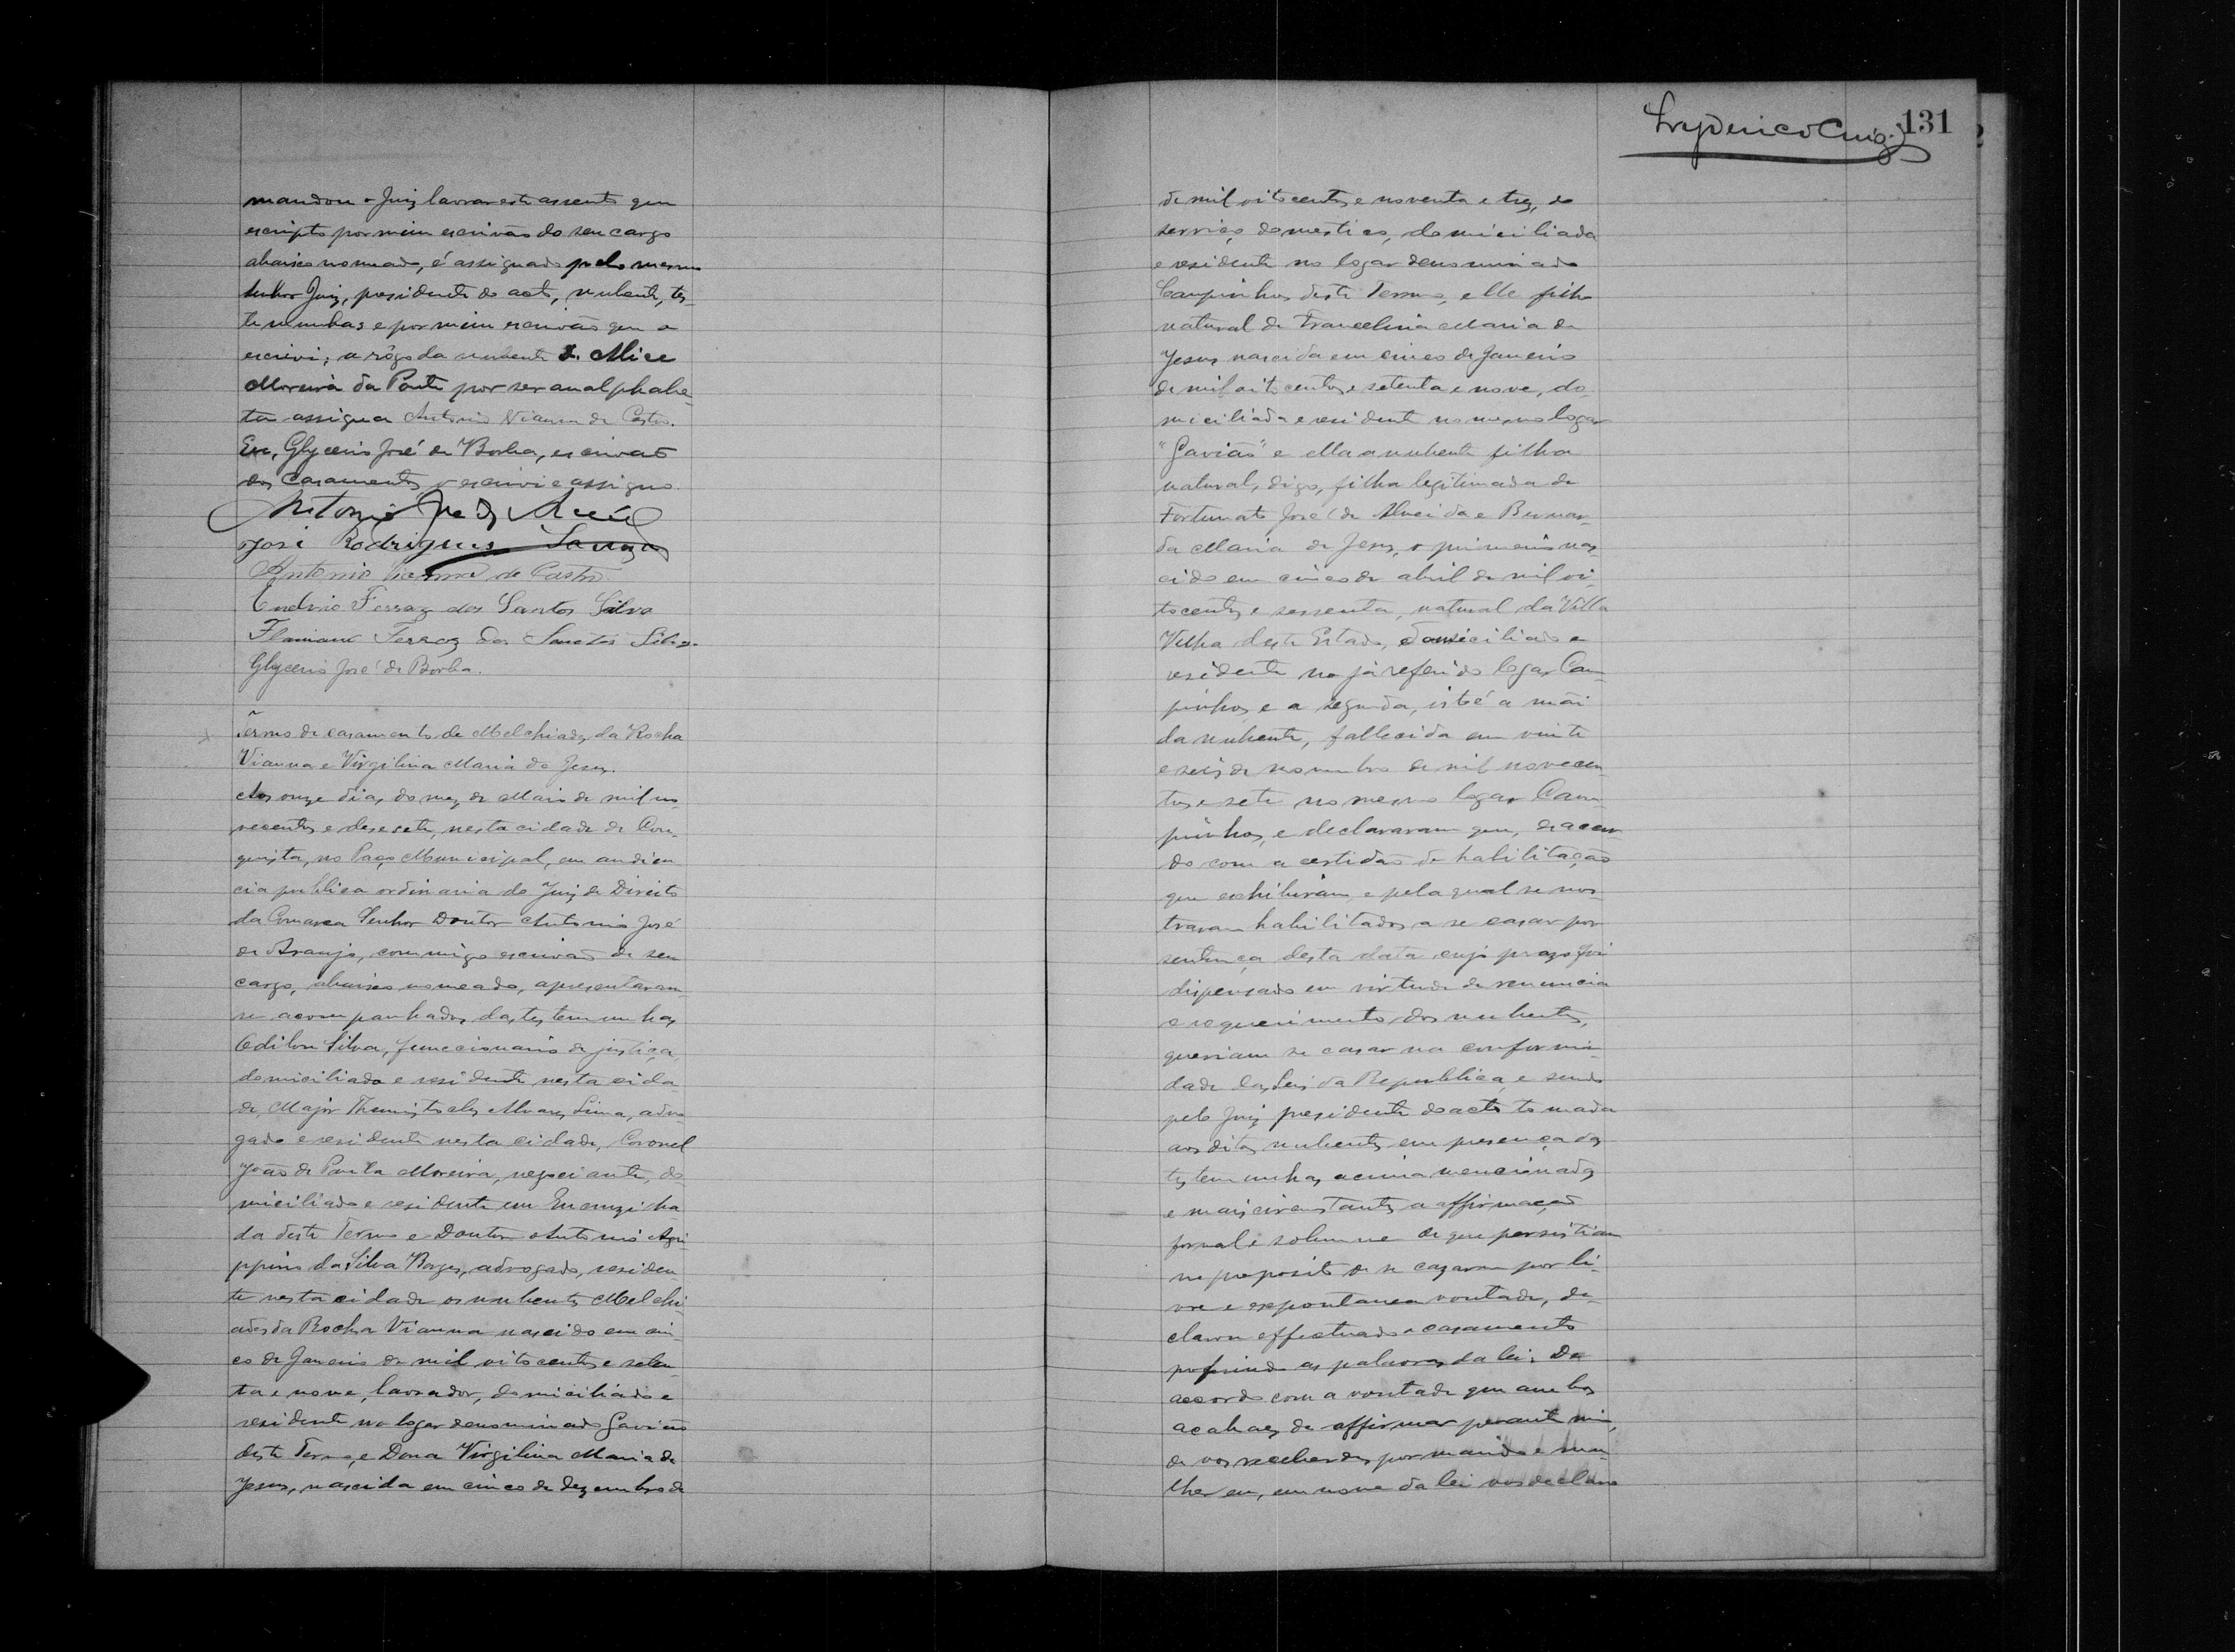 mandou o Juiz lavrar este assento que
escripto por mim escrivão do seu cargo
abaixo nomeado, é assignado pelo mesmo
senhor Juiz, presidente do acto, nubente, tes-
temunhas e por mim escrivão que o
escrevi; a rôgo da nubente D. Alice
Moreira da Ponte por ser analphabe-
ta assigna Antonio Vianna de Castro.
Eu, Glycerio José de Borba, escrivão
dos Casamentos o escrevi e assigno.
Antonio José de
José Rodrigues
Antonio Vianna de Castro
Ferraz dos Santos Silva
Ferraz dos Santos Silva.
Glycerio José de Borba.
Termo de casamento de Melchiades da Rocha
Vianna e Virgilina Maria de Jesus.
Aos onze dias do mez de Maio de mil no-
vecentos e desesete, nesta cidade de Con-
quista, no Paço Municipal, em audien-
cia publica ordinaria do Juiz de Direito
da Comarca Senhor Doutor Antonio José
de Araujo, commigo escrivão de seu
cargo, abaixo nomeado, apresentaram-
se acompanhados das testemunhas
Odilon Silva, funccionario de justiça,
domiciliado e residente nesta cida-
de, Major Themistocles Alvares Lima, advo-
gado e residente nesta cidade, Coronel
João de Paula Moreira, negociante, do-
miciliado e residente em Encruzilha-
da deste Termo e Doutor Antonio Agri-
ppino da Silva Borges, advogado, residen-
te nesta cidade os nubentes Melchi-
ades da Rocha Vianna nascido em cin-
co de Janeiro de mil oitocentos e seten-
ta e nove, lavrador, domiciliado e
residente no logar denominado Gavião
deste Termo, e Dona Virgilina Maria de
Jesus, nascida em cinco de dezembro de
131
de mil oitocentos e noventa e trez, do
serviço domestico, domiciliada
e residente no logar denominado
Campinhos deste Termo, elle filho
natural de Francelina Maria de
Jesus nascida em cinco de Janeiro
de mil oitocentos e setenta e nove, do-
miciliada e residente no mesmo logar
"Gavião" e ella a nubente filha
natural, digo, filha legitimada de
Fortunato José de Almeida e Bernar-
da Maria de Jesus, o primeiro nas-
cido em cinco de abril de mil oi-
tocentos e sessenta, natural da Villa
Velha deste Estado, domiciliado e
residente no já referido logar Cam-
pinhos e a segunda, isto é a mãi
da nubente, fallecida em vinte
e seis de novembro de mil novecen-
tos e sete no mesmo logar Cam-
pinhos, e declararam que, de accor-
do com a certidão de habilitação
que exhibiram e pela qual se mos-
travam habilitados a se casar por
sentença desta data cujo prazo foi
dispensado em virtude de renuncia
e requerimento dos nubentes,
queriam se casar na conformi-
dade das Leis da Republica, e sendo
pelo Juiz presidente do acto tomada
aos ditos nubentes em presença das
testemunhas acima mencionadas
e mais circunstantes a affirmação
formal e solemne de que persistiam
no proposito de se cazarem por li-
vre e espontanea vontade, de-
clarou effectuado o casamento
proferindo as palavras da lei: De
accordo com a vontade que ambos
acabaes de affirmar perante mim,
de vos receberdes por marido e mu-
lher eu, em nome da lei vos declaro